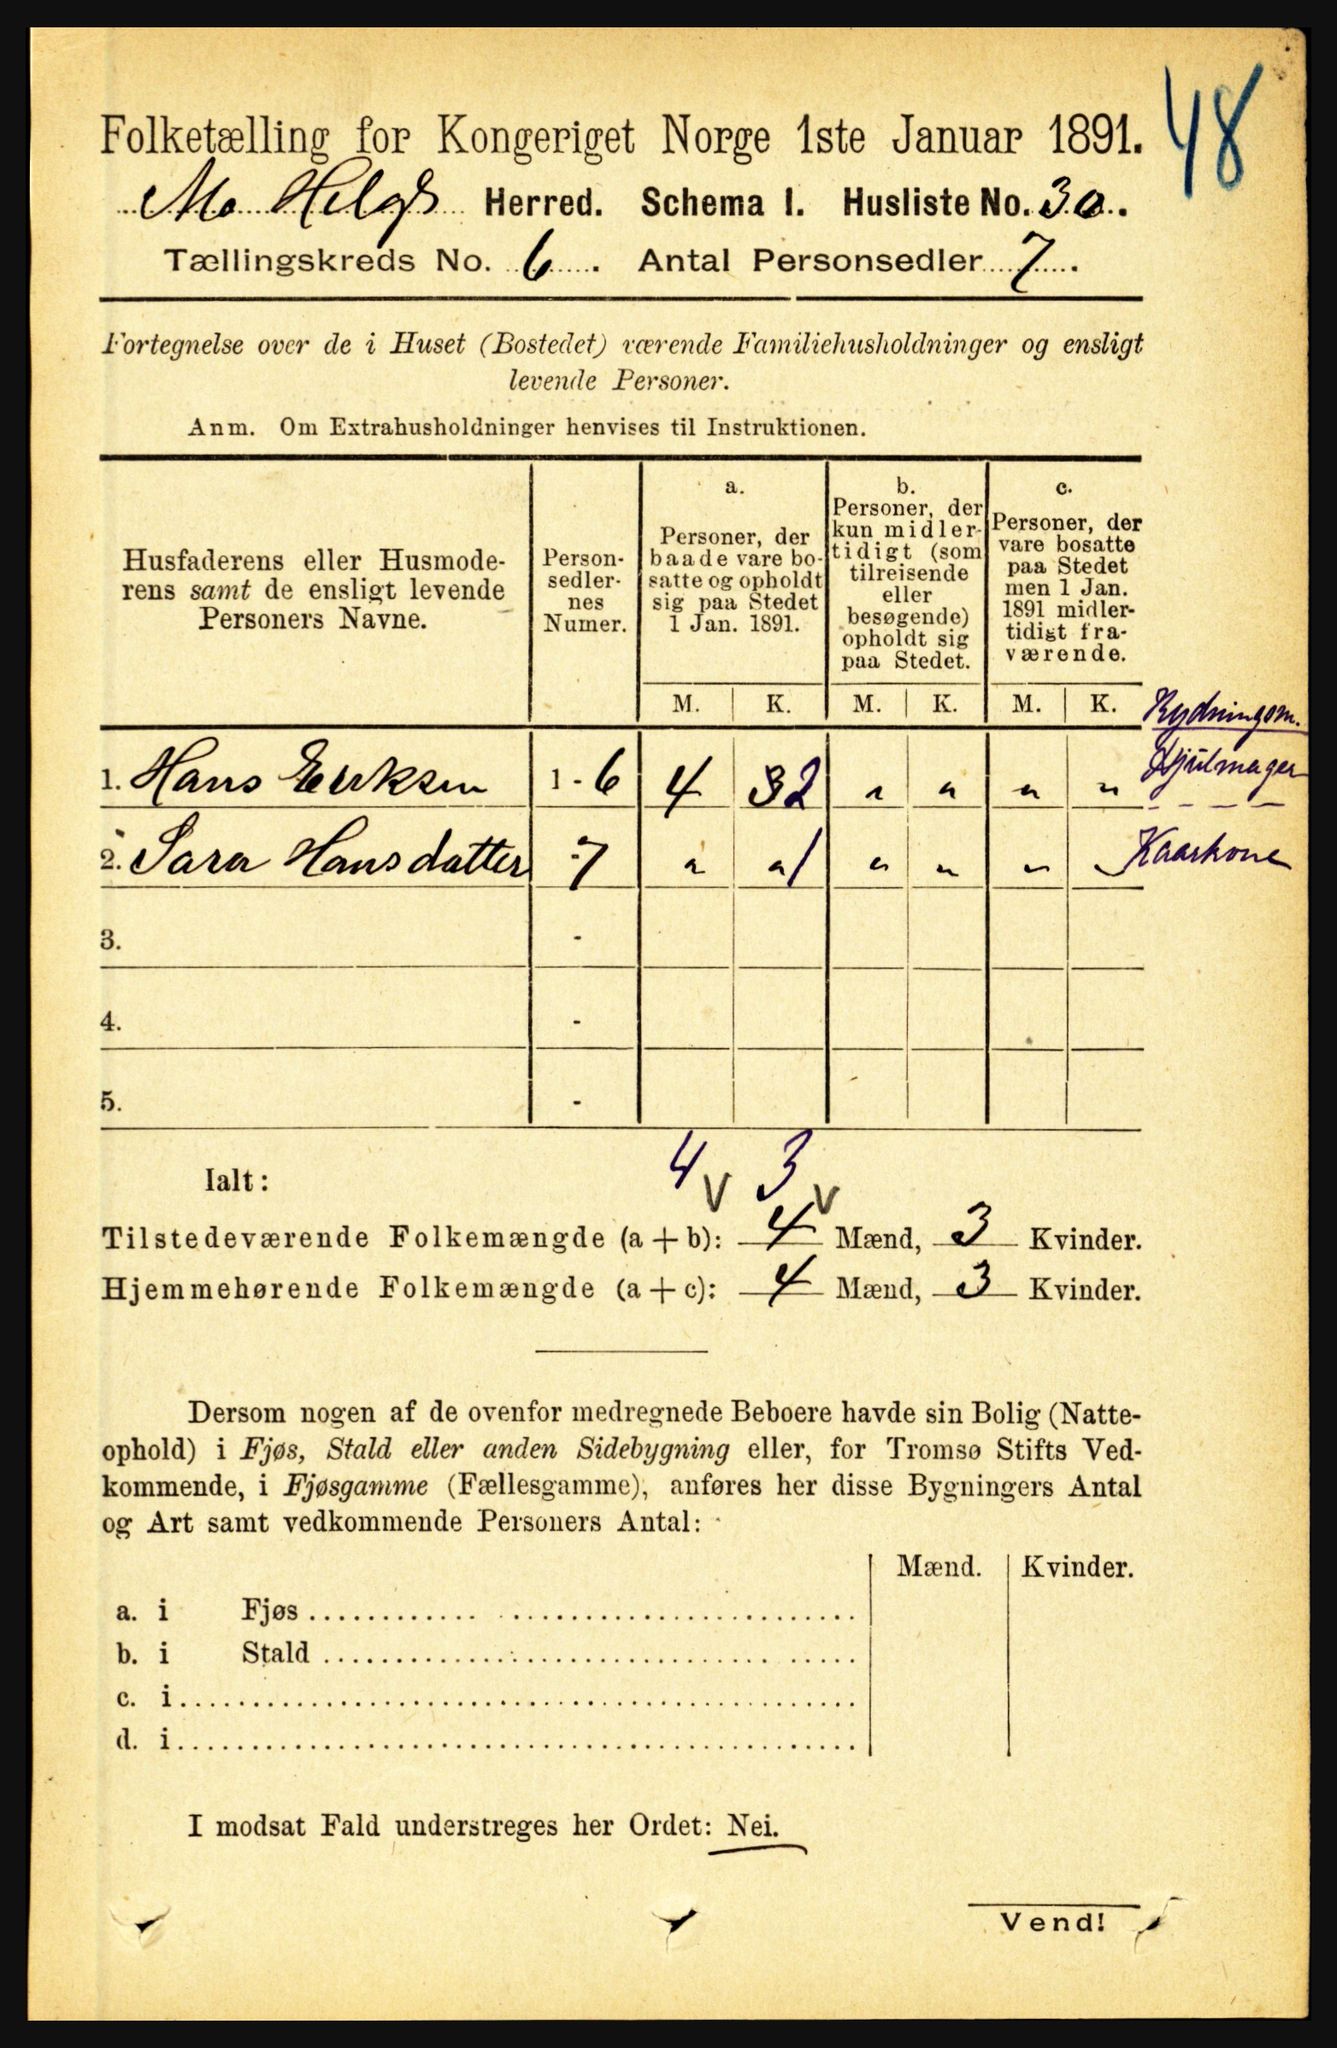 48
Folketælling for Kongeriget Norge 1ste Januar 1891.
Mo Helgl Herred. Schema I. Husliste No. 30.
Tællingskreds No. 6. Antal Personsedler 7.
Fortegnelse over de i Huset (Bostedet) værende Familiehusholdninger og ensligt
levende Personer.
Anm. Om Extrahusholdninger henvises til Instruktionen.
Husfaderens eller Husmode-
rens samt de ensligt levende
Personers Navne.
Person-
sedler-
nes
Numer.
a.
Personer, der
baade vare bo-
satte og opholdt
sig paa Stedet
1 Jan. 1891.
b.
Personer, der
kun midler-
tidigt (som
tilreisende
eller
besøgende)
opholdt sig
paa Stedet.
c.
Personer, der
vare bosatte
paa Stedet
men 1 Jan.
1891 midler-
tidigt fra-
værende.
M. K. M. K. M. K.
Rydningsm.
1. Hans Eriksen 1 - 6 4 32 " " " " Hjulmager
2. Sara Hansdatter 7 " " 1 " " " " Kaarkone
3. -
4. -
5. -
Ialt: 4 V 3 V
Tilstedeværende Folkemængde (a + b): 4 Mænd, 3 Kvinder.
Hjemmehørende Folkemængde (a + c): 4 Mænd, 3 Kvinder.
Dersom nogen af de ovenfor medregnede Beboere havde sin Bolig (Natte-
ophold) i Fjøs, Stald eller anden Sidebygning eller, for Tromsø Stifts Ved-
kommende, i Fjøsgamme (Fællesgamme), anføres her disse Bygningers Antal
og Art samt vedkommende Personers Antal:
Mænd. Kvinder.
a. i Fjøs
b. i Stald
c. i
d. i
I modsat Fald understreges her Ordet: Nei.
Vend!